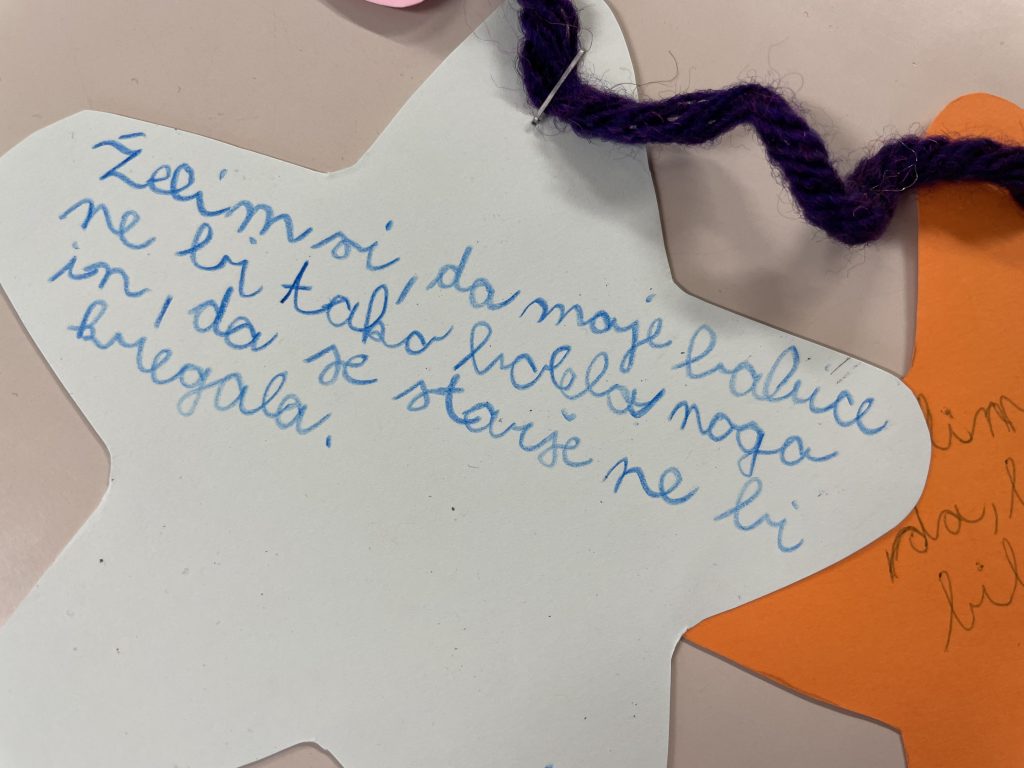 Želim si, da moje babice
ne bi tako bolela noga
in, da se starše ne bi
kregala.
lim
da,
bil